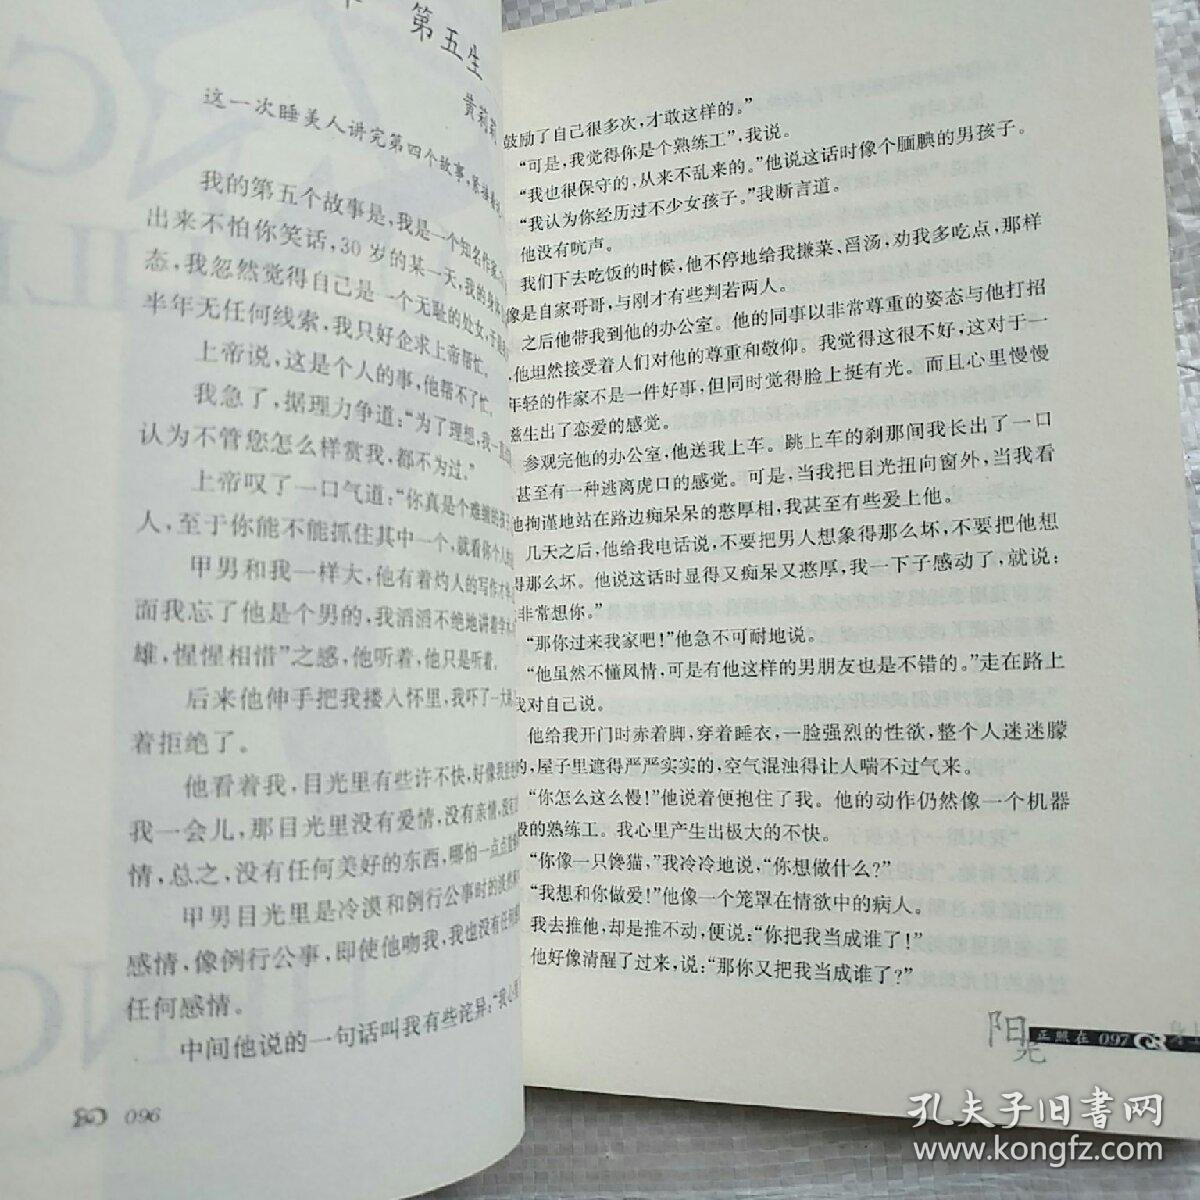 第五生
黄莉莉
这一次睡美人讲完第四个故事，
我的第五个故事是，我是一个知名作家，
出来不怕你笑话，30岁的某一天，我的身体
态，我忽然觉得自己是一个无耻的处女，于是
半年无任何线索，我只好企求上帝帮忙。
上帝说，这是个人的事，他帮不了忙。
我急了，据理力争道：“为了理想，我一直
认为不管您怎么样赏我，都不为过。”
上帝叹了一口气道：“你真是个难缠的孩子
人，至于你能不能抓住其中一个，就看你个人
甲男和我一样大，他有着灼人的写作才
面我忘了他是个男的，我滔滔不绝地讲着
雄，惺惺相惜”之感，他听着，他只是听着。
后来他伸手把我搂入怀里，我吓了一大
着拒绝了。
他看着我，目光里有些许不快，好像我
我一会儿，那目光里没有爱情，没有亲情，没有
情，总之，没有任何美好的东西，哪怕一点点
甲男目光里是冷漠和例行公事时的漠然和
感情，像例行公事，即使他吻我，我也没有任何
任何感情。
中间他说的一句话叫我有些诧异：“我心
096
鼓励了自己很多次，才敢这样的。”
“可是，我觉得你是个熟练工”，我说。
“我也很保守的，从来不乱来的。”他说这话时像个腼腆的男孩子。
“我认为你经历过不少女孩子。”我断言道。
他没有吭声。
我们下去吃饭的时候，他不停地给我搛菜、舀汤，劝我多吃点，那样
像是自家哥哥，与刚才有些判若两人。
之后他带我到他的办公室。他的同事以非常尊重的姿态与他打招
，他坦然接受着人们对他的尊重和敬仰。我觉得这很不好，这对于一
年轻的作家不是一件好事，但同时觉得脸上挺有光。而且心里慢慢
滋生出了恋爱的感觉。
参观完他的办公室，他送我上车。跳上车的刹那间我长出了一口
甚至有一种逃离虎口的感觉。可是，当我把目光扭向窗外，当我看
他拘谨地站在路边痴呆呆的憨厚相，我甚至有些爱上他。
几天之后，他给我电话说，不要把男人想象得那么坏，不要把他想
得那么坏。他说这话时显得又痴呆又憨厚，我一下子感动了，就说：
非常想你。”
“那你过来我家吧！”他急不可耐地说。
“他虽然不懂风情，可是有他这样的男朋友也是不错的。”走在路上
我对自己说。
他给我开门时赤着脚，穿着睡衣，一脸强烈的性欲，整个人迷迷朦
的，屋子里遮得严严实实的，空气混浊得让人喘不过气来。
“你怎么这么慢！”他说着便抱住了我。他的动作仍然像一个机器
般的熟练工。我心里产生出极大的不快。
“你像一只馋猫，”我冷冷地说，“你想做什么？”
“我想和你做爱！”他像一个笼罩在情欲中的病人。
我去推他，却是推不动，便说：“你把我当成谁了！”
他好像清醒了过来，说：“那你又把我当成谁了？”
阳光
正照在 097
孔夫子旧书网
www.kongfz.com